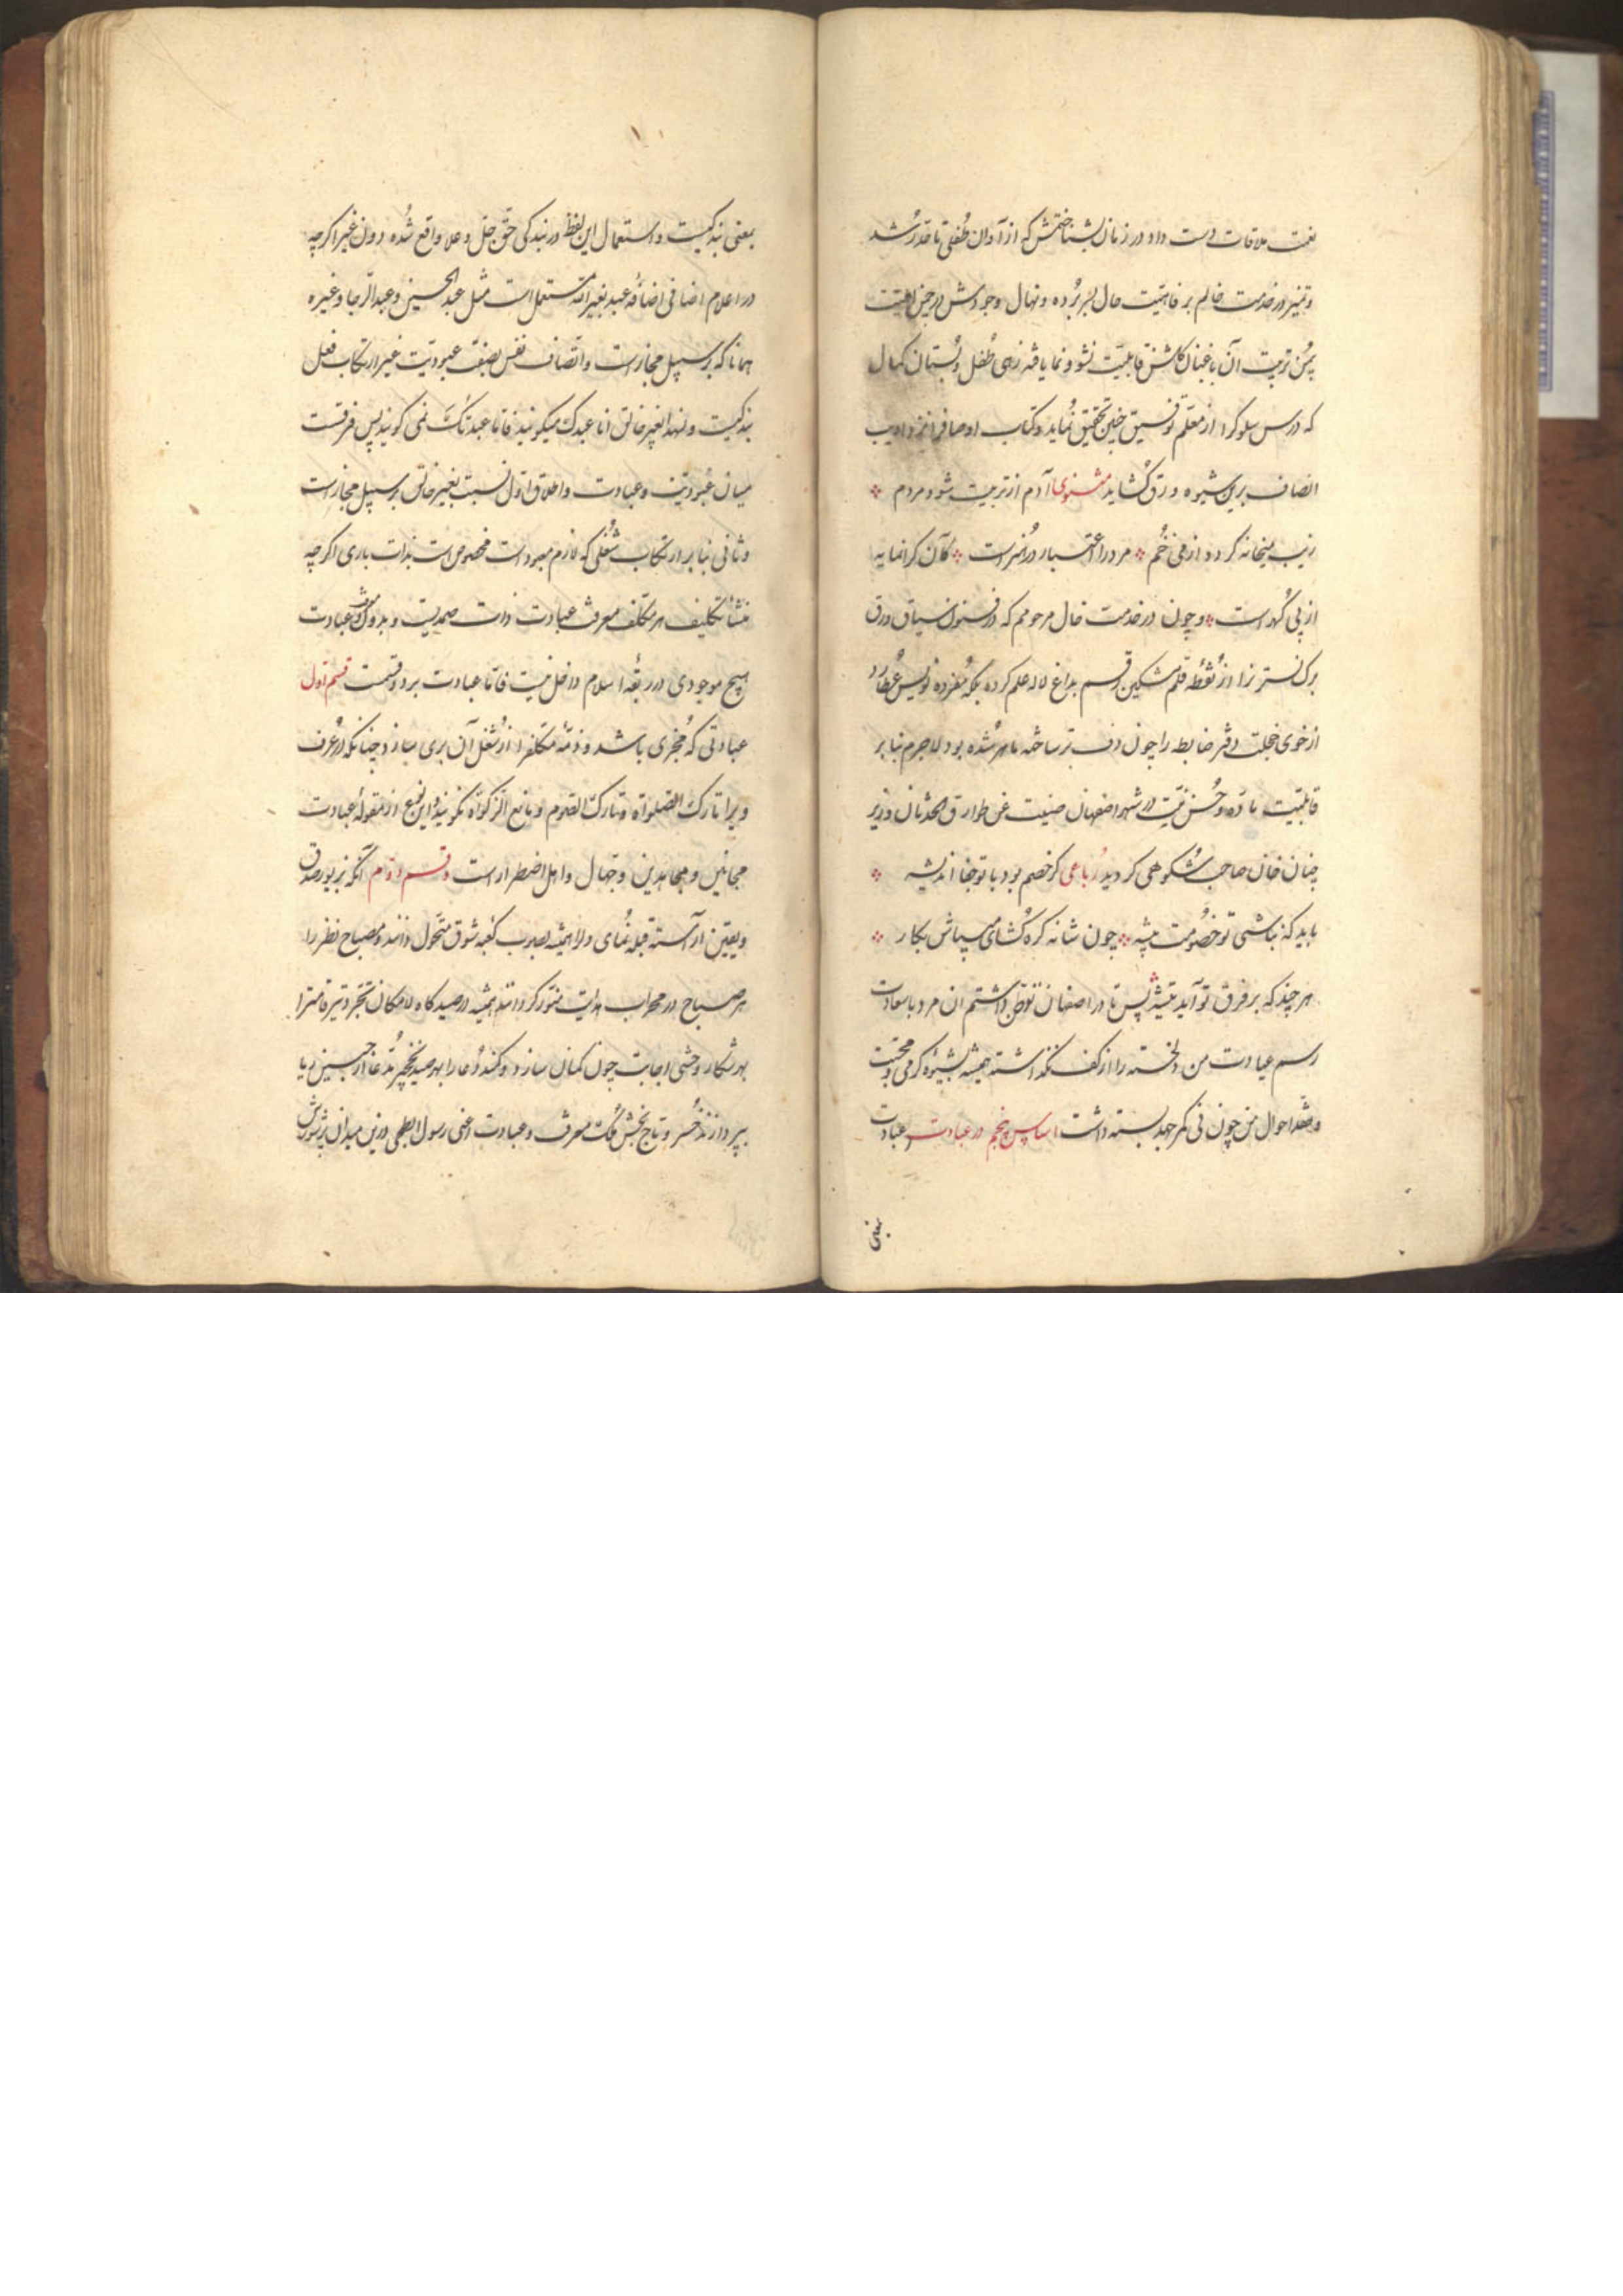 نعمت ملاقات دست داد در زمان شناختمش که از آوان طفلی تا حد رشد
و تمیز در خدمت خالم بر فاهیت حال بسر برده و نهال وجودش در چمن
بیمن تربیت آن باغبان گلشن قابلیت نشو و نما یافته زهی طفل دبستان کمال
که درس سلوکرا از معلم توفیق چنین تحقیق نماید و کتاب اوصافرا نزد ادیب
انصاف برین شیوه ورق گشاید مثنوی آدم از تربیت شود مردم
زیب میخانه کردد از می خم مرد را اعتبار در هنر است کان کرانمایه
از پی گهر است و چون در خدمت خال مرحومم که در فنون سیاق ورق
برک نسترنرا از نقطه قلم مشکین رقم بداغ لاله علم کرده بلکه مفرده نویس عطارد
از خوی خجلت دفتر ضابطه را چون دف تر ساخته ماهر شده بود لاجرم بنا بر
قابلیت ماده و حسن نیت در شهر اصفهان صینت عن طوارق الحدثان وزیر
چنان خان صاحب شکوهی کردید رباعی کر خصم بود با تو جفا اندیشه
باید که نباشی تو خصومت پیشه چون شانه کره گشای میباش بکار
هر چند که بر فرق تو آید تیشه پس تا در اصفهان توطن داشتم ان مرد با سعادت
رسم عیادت من دلخسته را از کف نگذاشته همیشه بشیوه کرمی و محبت
و تفقد احوال من چون نی کمر جهد بسته داشت اساس پنجم در عبادت عبادت
بمعنی
بمعنی بندکیست و استعمال این لفظ در بندکی حق جل و علا واقع شده دون غیر اکرچه
در اعلام اضافی اضافه عبد بغیر الله مستعمل است مثل عبد الحسین و عبد الرجا و غیره
همانا که بر سبیل مجاز است و اتصاف نفس بصفت عبودیت غیر ارتکاب فعل
بندکیست و لهذا بغیر خالق انا عبدک میکویند فاما عبدتک نمی کویند پس فرقست
میان عبودیت و عبادت و اطلاق اول نسبت بغیر خالق بر سبیل مجاز است
و ثانی بنا بر ارتکاب شغلی که لازم معبود است مخصوص است بذات باری اکرچه
منشأ تکلیف هر مکلف معرفت عبادت ذات صمدیت و بدون عبادت
هیچ موجودی در ربقه اسلام داخل نیست فاما عبادت بر دو قسمت قسم اول
عبادتی که مجزی باشد و ذمه مکلفرا از شغل آن بری سازد چنانکه در عرف
ویرا تارک الصلواة و تارک الصوم و مانع الزکوة نکویند و این نوع از مقوله عبادت
مجانین و مجاهدین و جهال و اهل اضطرار است و قسم دوم آنکه بزیور صدق
و یقین آراسته قبله نمای دلرا همیشه بصوب کعبه شوق متحول دانند و مصباح نظر را
هر صباح در محراب هدایت منور کردانند همیشه در صیدکاه لامکان تجرد تیر قامترا
بهر شکار وحشی اجابت چون کمان سازد و کمند دعا را بهر صید نخچیر مدعا از چین ریا
بپردازند خسرو تاج بخش ملک معرفت و عبادت اعنی رسول ابطحی درین میدان